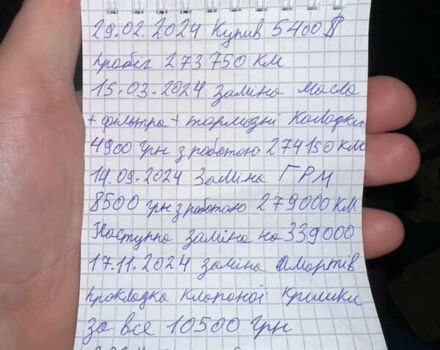 29.02.2024 Купив 5400$
пробег 273750 КМ
15.03.2024 заміна масла
+ фильтра + тормозні Колодки
4900 грн з работою 274150 КМ
14.09.2024 Заміна ГРМ
8500 грн з работою 279000 КМ
Наступна заміна на 339000
17.11.2024 заміна Амортів
прокладка клапоної Кришки
за все 10500 Грн